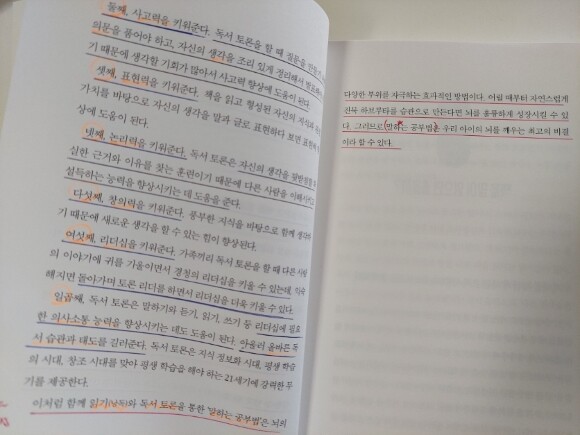 둘째, 사고력을 키워준다. 독서 토론을 할 때 질문을 만들기
의문을 품어야 하고, 자신의 생각을 조리 있게 정리해서 발표
기 때문에 생각할 기회가 많아서 사고력 향상에 도움이 된다.
셋째, 표현력을 키워준다. 책을 읽고 형성된 자신의 지식과
가치를 바탕으로 자신의 생각을 말과 글로 표현하다 보면 표현력
상에 도움이 된다.
넷째, 논리력을 키워준다. 독서 토론은 자신의 생각을 뒷받침할
실한 근거와 이유를 찾는 훈련이기 때문에 다른 사람을 이해시키고
설득하는 능력을 향상시키는 데 도움을 준다.
다섯째, 창의력을 키워준다. 풍부한 지식을 바탕으로 함께 생각하
기 때문에 새로운 생각을 할 수 있는 힘이 향상된다.
여섯째, 리더십을 키워준다. 가족끼리 독서 토론을 할 때 다른 사람
의 이야기에 귀를 기울이면서 경청의 리더십을 키울 수 있는데, 익숙
해지면 돌아가며 토론 리더를 하면서 리더십을 더욱 키울 수 있다.
일곱째, 독서 토론은 말하기와 듣기, 읽기, 쓰기 등 리더십에 필요
한 의사소통 능력을 향상시키는 데도 도움이 된다. 아울러 올바른 독
서 습관과 태도를 길러준다. 독서 토론은 지식 정보화 시대, 평생 학습
의 시대, 창조 시대를 맞아 평생 학습을 해야 하는 21세기에 강력한 무
기를 제공한다.
이처럼 함께 읽기(낭독)와 독서 토론을 통한 '말하는 공부법'은 뇌의
다양한 부위를 자극하는 효과적인 방법이다. 어릴 때부터 자연스럽게
전뚝 하브루타를 습관으로 만든다면 뇌를 훌륭하게 성장시킬 수 있
다. 그러므로 말하는 공부법은 우리 아이의 뇌를 깨우는 최고의 비결
이라 할 수 있다.